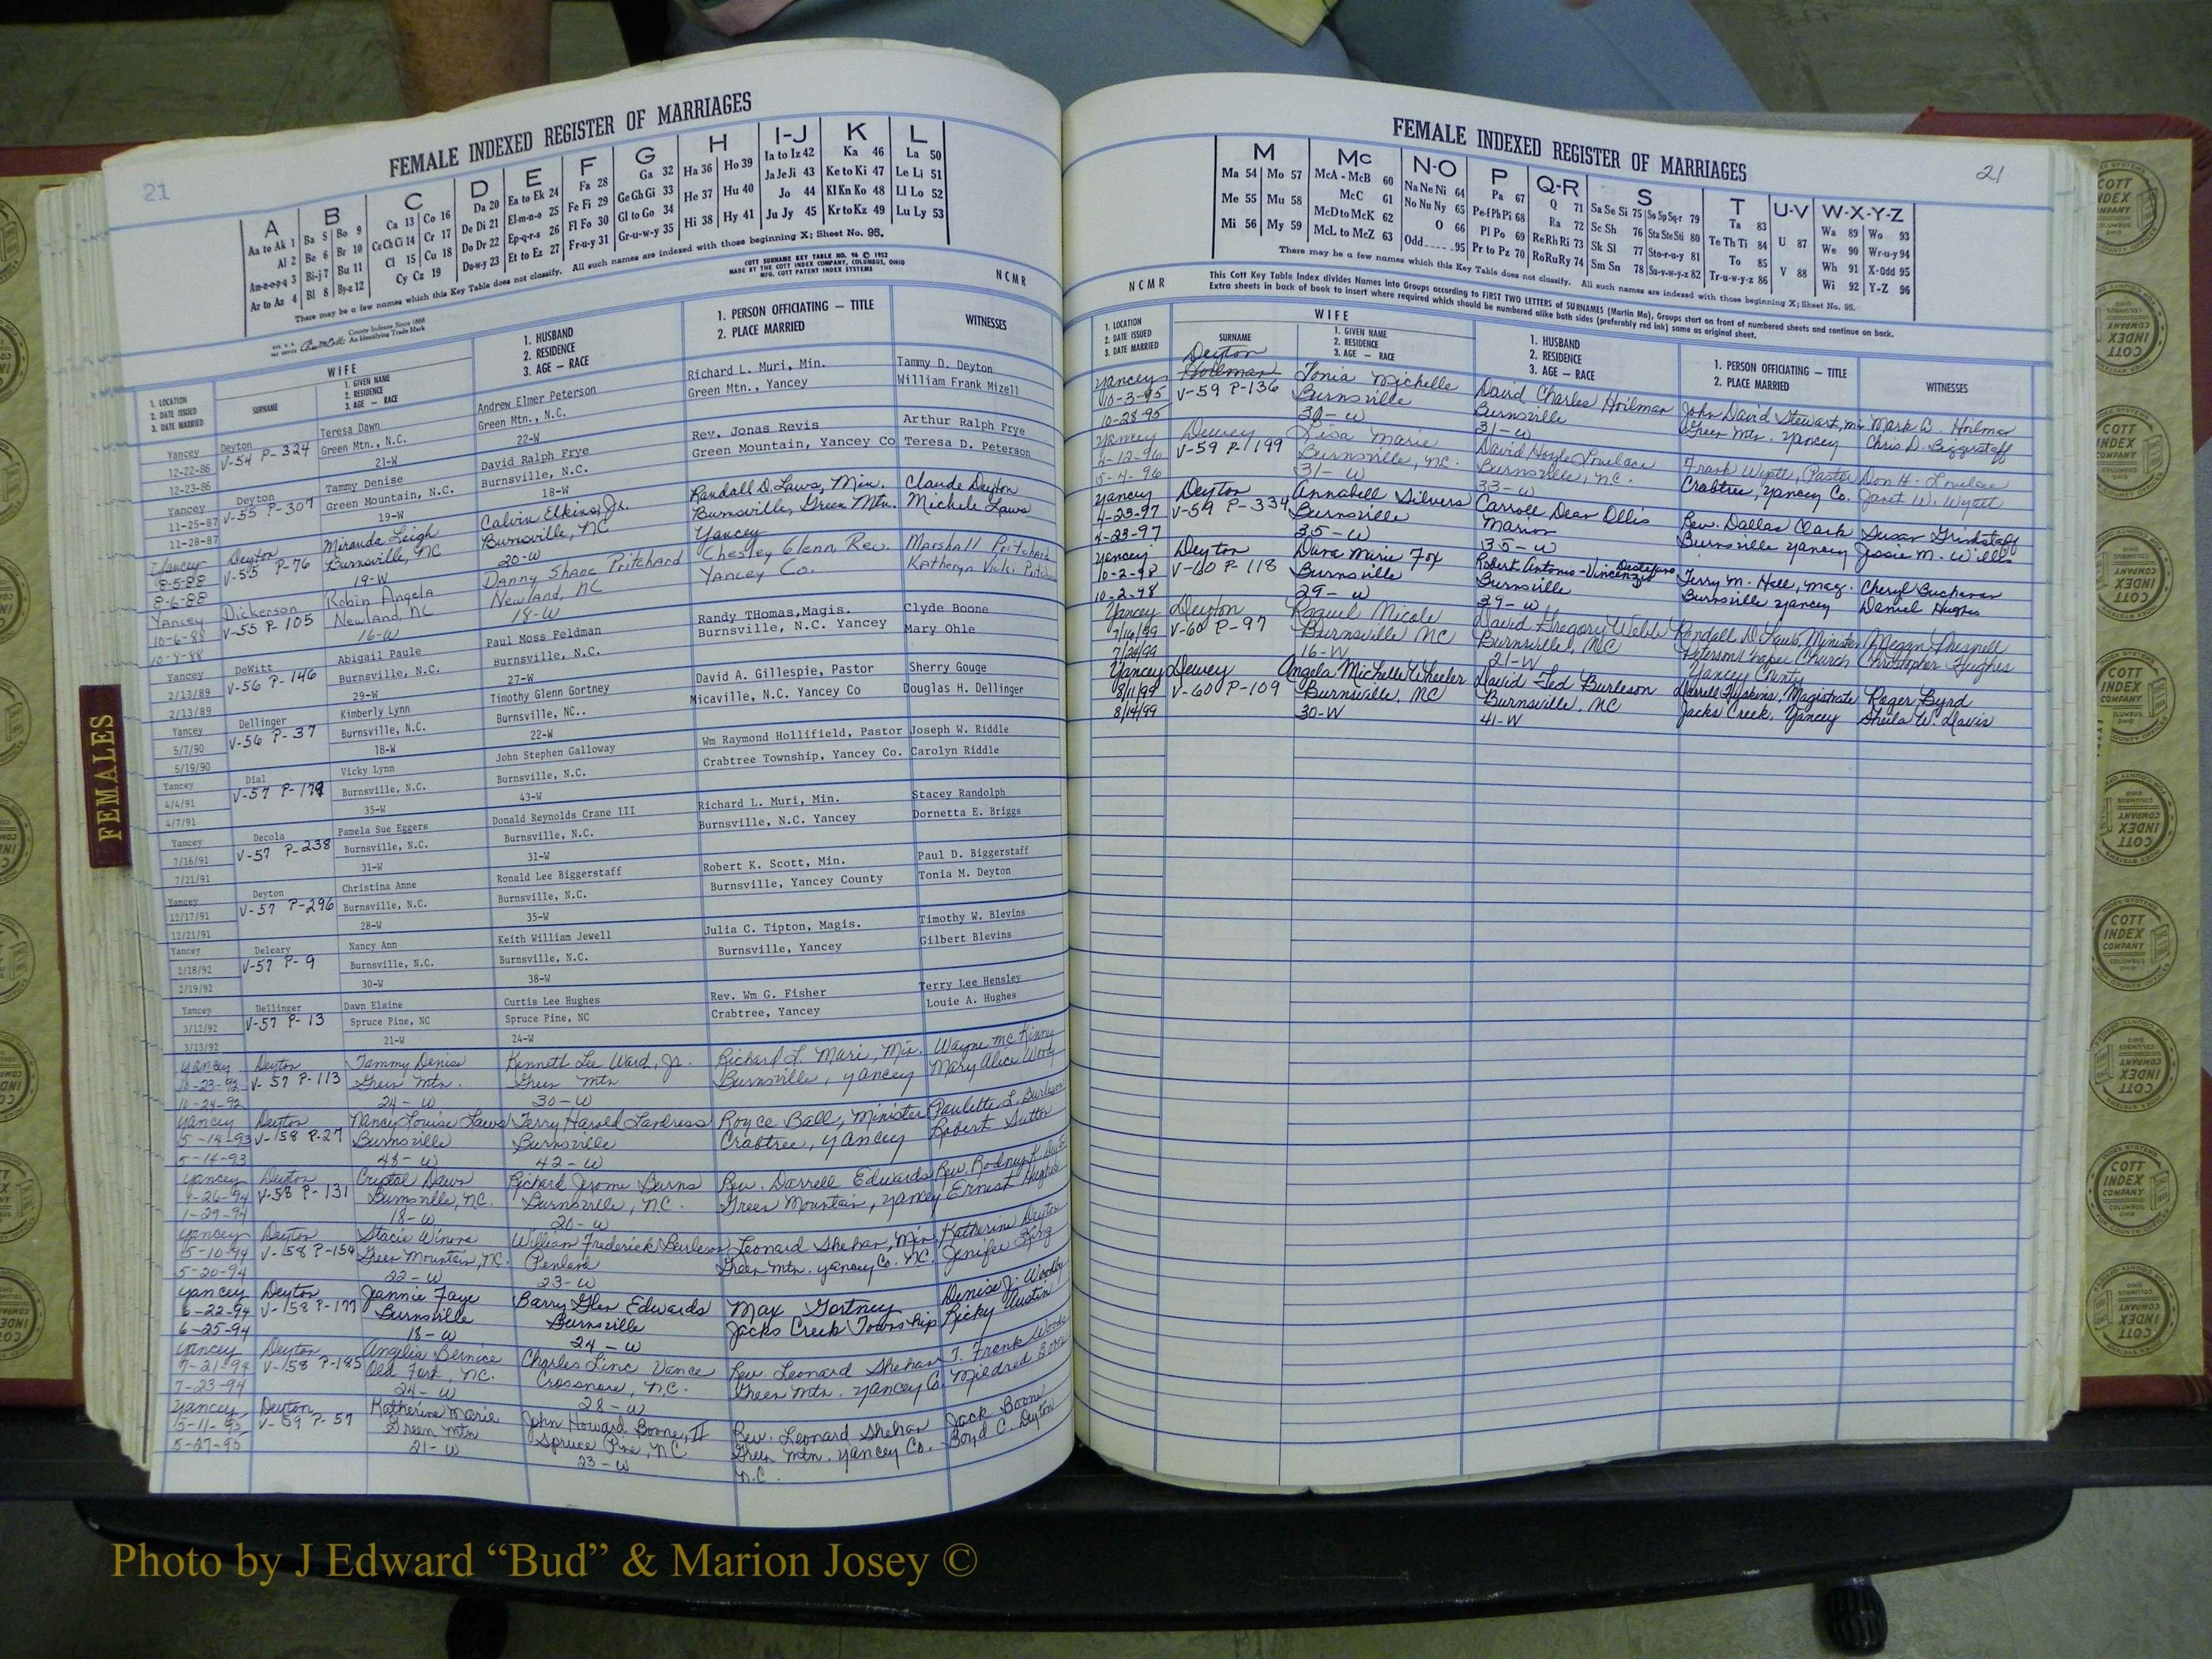 21
FEMALE INDEXED REGISTER OF MARRIAGES
A B C D E F G H I-J K L
Aa to Ak 1 Ba 5 Bo 9 Ca 13 Co 16 Da 20 Ea to Ek 24 Fa 28 Ga 32 Ha 36 Ho 39 Ia to Iz 42 Ka 46 La 50
Al 2 Be 6 Br 10 Ce Ch Ci 14 Cr 17 De Di 21 El-m-n-o 25 Fe Fi 29 Ge Gh Gi 33 He 37 Hu 40 Ja Je Ji 43 Ke to Ki 47 Le Li 51
Am-n-o-p-q 3 Bi-j 7 Bu 11 Cl 15 Cu 18 Do Dr 22 Ep-q-r-s 26 Fl Fo 30 Gl to Go 34 Hi 38 Hy 41 Jo 44 Kl Kn Ko 48 Ll Lo 52
Ar to Az 4 Bl 8 By-z 12 Cy Cz 19 Du-w-y 23 Et to Ez 27 Fr-u-y 31 Gr-u-w-y 35 Ju Jy 45 Kr to Kz 49 Lu Ly 53
There may be a few names which this Key Table does not classify. All such names are indexed with those beginning X; Sheet No. 95.
County Indexes Since 1888
An Identifying Trade Mark
COTT SURNAME KEY TABLE NO. 96 © 1952
MADE BY THE COTT INDEX COMPANY, COLUMBUS, OHIO
MFG. COTT PATENT INDEX SYSTEMS
NCMR
1. LOCATION
2. DATE ISSUED
3. DATE MARRIED
WIFE
SURNAME
1. GIVEN NAME
2. RESIDENCE
3. AGE — RACE
1. HUSBAND
2. RESIDENCE
3. AGE — RACE
1. PERSON OFFICIATING — TITLE
2. PLACE MARRIED
WITNESSES
Yancey Deyton Teresa Dawn Andrew Elmer Peterson Richard L. Muri, Min. Tammy D. Deyton
12-22-86 V-54 P-324 Green Mtn., N.C. Green Mtn., N.C. Green Mtn., Yancey William Frank Mizell
12-23-86 21-W 22-W
Yancey Deyton Tammy Denise David Ralph Frye Rev. Jonas Revis Arthur Ralph Frye
11-25-87 V-55 P-307 Green Mountain, N.C. Burnsville, N.C. Green Mountain, Yancey Co Teresa D. Peterson
11-28-87 19-W 18-W
Yancey Deyton Miranda Leigh Calvin Elkins, Jr. Randall D. Laws, Min. Claude Deyton
8-5-88 V-55 P-76 Burnsville, NC Burnsville, NC Burnsville, Green Mtn. Michele Laws
8-6-88 19-W 20-W Yancey
Yancey Dickerson Robin Angela Danny Shane Pritchard Chesley Glenn, Rev. Marshall Pritchard
10-6-88 V-55 P-105 Newland, NC Newland, NC Yancey Co. Katheryn Vicki Pritchard
10-9-88 16-W 18-W
Yancey DeWitt Abigail Paule Paul Moss Feldman Randy THomas, Magis. Clyde Boone
2/13/89 V-56 P-146 Burnsville, N.C. Burnsville, N.C. Burnsville, N.C. Yancey Mary Ohle
2/13/89 29-W 27-W
Yancey Dellinger Kimberly Lynn Timothy Glenn Gortney David A. Gillespie, Pastor Sherry Gouge
5/7/90 V-56 P-37 Burnsville, N.C. Burnsville, NC.. Micaville, N.C. Yancey Co Douglas H. Dellinger
5/19/90 18-W 22-W
Yancey Dial Vicky Lynn John Stephen Galloway Wm Raymond Hollifield, Pastor Joseph W. Riddle
4/4/91 V-57 P-179 Burnsville, N.C. Burnsville, N.C. Crabtree Township, Yancey Co. Carolyn Riddle
4/7/91 35-W 43-W
Yancey Decola Pamela Sue Eggers Donald Reynolds Crane III Richard L. Muri, Min. Stacey Randolph
7/16/91 V-57 P-238 Burnsville, N.C. Burnsville, N.C. Burnsville, N.C. Yancey Dornetta E. Briggs
7/21/91 31-W 31-W
Yancey Deyton Christina Anne Ronald Lee Biggerstaff Robert K. Scott, Min. Paul D. Biggerstaff
12/17/91 V-57 P-296 Burnsville, N.C. Burnsville, N.C. Burnsville, Yancey County Tonia M. Deyton
12/21/91 28-W 35-W
Yancey Deleary Nancy Ann Keith William Jewell Julia C. Tipton, Magis. Timothy W. Blevins
2/18/92 V-57 P-9 Burnsville, N.C. Burnsville, N.C. Burnsville, Yancey Gilbert Blevins
2/19/92 30-W 38-W
Yancey Dellinger Dawn Elaine Curtis Lee Hughes Rev. Wm G. Fisher Terry Lee Hensley
3/12/92 V-57 P-13 Spruce Pine, NC Spruce Pine, NC Crabtree, Yancey Louie A. Hughes
3/13/92 21-W 24-W
Yancey Deyton Tammy Denise Kenneth Lee Ward, Jr. Richard L. Mari, Min. Wayne McKinney
10-23-92 V-57 P-113 Green Mtn. Green Mtn Burnsville, Yancey Mary Alice Woody
10-24-92 24-W 30-W
Yancey Deyton Nancy Louise Laws Terry Harold Landress Royce Ball, Minister Paulette L. Burleson
5-14-93 V-158 P-27 Burnsville Burnsville Crabtree, Yancey Robert Sutton
5-14-93 48-W 42-W
Yancey Deyton Crystal Dawn Richard Jerome Burns Rev. Darrell Edwards Rev. Rodney K.
1-26-94 V-58 P-131 Burnsville, N.C. Burnsville, N.C. Green Mountain, Yancey Ernest Hughes
1-29-94 18-W 20-W
Yancey Deyton Stacie Winona William Frederick Burleson Leonard Shehan, Min Katherine Deyton
5-10-94 V-158 P-154 Green Mountain, N.C. Penland Green Mtn. Yancey Co. N.C. Jenifer King
5-20-94 22-W 23-W
Yancey Deyton Jannie Faye Barry Glen Edwards Max Gortney Denise J. Woodby
6-22-94 V-158 P-177 Burnsville Burnsville Jacks Creek Township Ricky Austin
6-25-94 18-W 24-W
Yancey Deyton Angelia Bernice Charles Linc Vance Rev. Leonard Shehan T. Frank Woods
7-21-94 V-158 P-185 Old Fort, N.C. Crossnore, N.C. Green Mtn. Yancey Co. Mildred Boone
7-23-94 24-W 28-W
Yancey Deyton Katherine Marie John Howard Boone, II Rev. Leonard Shehan Jack Boone
5-11-95 V-59 P-57 Green Mtn Spruce Pine, NC Green Mtn. Yancey Co. Boyd C. Deyton
5-27-95 21-W 23-W N.C.
FEMALES
FEMALE INDEXED REGISTER OF MARRIAGES
21
M Mc N-O P Q-R S T U-V W-X-Y-Z
Ma 54 Mo 57 McA - McB 60 Na Ne Ni 64 Pa 67 Q 71 Sa Se Si 75 So Sp Sq-r 79 Ta 83 Wa 89 Wo 93
Me 55 Mu 58 McC 61 No Nu Ny 65 Pe-f Ph Pi 68 Ra 72 Sc Sh 76 Sta Ste Sti 80 Te Th Ti 84 U 87 We 90 Wr-u-y 94
Mi 56 My 59 McD to McK 62 O 66 Pl Po 69 Re Rh Ri 73 Sk Sl 77 Sto-r-u-y 81 To 85 V 88 Wh 91 X-Odd 95
McL to McZ 63 Odd 95 Pr to Pz 70 Ro Ru Ry 74 Sm Sn 78 Su-v-w-y-z 82 Tr-u-w-y-z 86 Wi 92 Y-Z 96
There may be a few names which this Key Table does not classify. All such names are indexed with those beginning X; Sheet No. 95.
NCMR
This Cott Key Table Index divides Names into Groups according to FIRST TWO LETTERS of SURNAMES (Martin Ma), Groups start on front of numbered sheets and continue on back.
Extra sheets in back of book to insert where required which should be numbered alike both sides (preferably red ink) same as original sheet.
1. LOCATION
2. DATE ISSUED
3. DATE MARRIED
WIFE
SURNAME
1. GIVEN NAME
2. RESIDENCE
3. AGE — RACE
1. HUSBAND
2. RESIDENCE
3. AGE — RACE
1. PERSON OFFICIATING — TITLE
2. PLACE MARRIED
WITNESSES
Deyton
Yancey Hoilman Tonia Michelle David Charles Hoilman John David Stewart, Min Mark W. Hoilman
10-3-95 V-59 P-136 Burnsville Burnsville Green Mtn. Yancey Chris D. Biggerstaff
10-28-95 30-W 31-W
Yancey Dewey Lisa Marie David Hoyle Lovelace Frank Wyatt, Pastor Don H. Lovelace
4-12-96 V-59 P-199 Burnsville, NC. Burnsville, NC. Crabtree, Yancey Co. Janet W. Wyatt
5-4-96 31-W 33-W
Yancey Deyton Annabell Silvers Carroll Dean Ollis Rev. Dallas Clack Susan Grindstaff
4-23-97 V-59 P-334 Burnsville Marion Burnsville Yancey Jessie M. Willis
4-23-97 35-W 35-W
Yancey Deyton Dana Marie Fox Robert Antonio-Vincenzo Terry M. Hall, Mag. Cheryl Buchanan
10-2-98 V-60 P-118 Burnsville Burnsville Burnsville Yancey Daniel Hughes
10-2-98 29-W 29-W
Yancey Deyton Raquel Nicole David Gregory Webb Randall D. Laws, Minister Megan Thesnell
7/16/99 V-60 P-97 Burnsville NC Burnsville, NC Peterson Chapel Church Christopher Hughes
7/24/99 16-W 21-W Yancey County
Yancey Dewey Angela Michelle Wheeler David Ted Burleson Darrell Hyskins, Magistrate Roger Byrd
8/11/99 V-60 P-109 Burnsville, NC Burnsville, NC Jacks Creek, Yancey Sheila W. Davis
8/14/99 30-W 41-W
COTT
INDEX
COMPANY
COLUMBUS
OHIO
Photo by J Edward “Bud” & Marion Josey ©